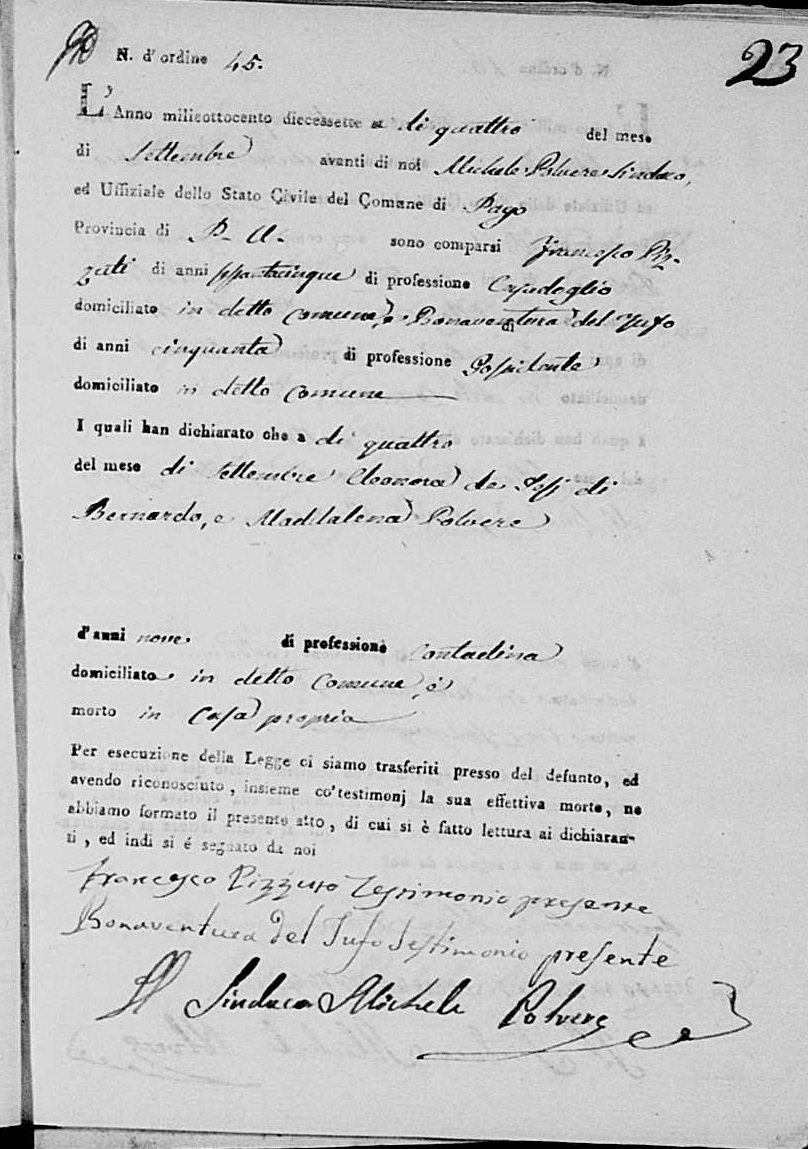 N. d'ordine 45.
23
L'Anno milleottocento diecessette a di quattro del mese
di Settembre avanti di noi Michele Polvere Sindaco,
ed Uffiziale dello Stato Civile del Comune di Pago
Provincia di P. U. sono comparsi Francesco Piz-
zuti di anni di professione
domiciliato in detto comune, e Bonaventura del Tufo
di anni cinquanta di professione Possidente
domiciliato in detto comune
I quali han dichiarato che a di quattro
del mese di Settembre Eleonora de di
Bernardo, e Maddalena Polvere
d'anni nove di professione contadina
domiciliata in detto Comune, è
morto in Casa propria
Per esecuzione della Legge ci siamo trasferiti presso del defunto, ed
avendo riconosciuto, insieme co'testimonj la sua effettiva morte, ne
abbiamo formato il presente atto, di cui si è fatto lettura ai dichiaran-
ti, ed indi si é segnato da noi
Francesco Pizzuto Testimonio presente
Bonaventura del Tufo Testimonio presente
Il Sindaco Michele Polvere